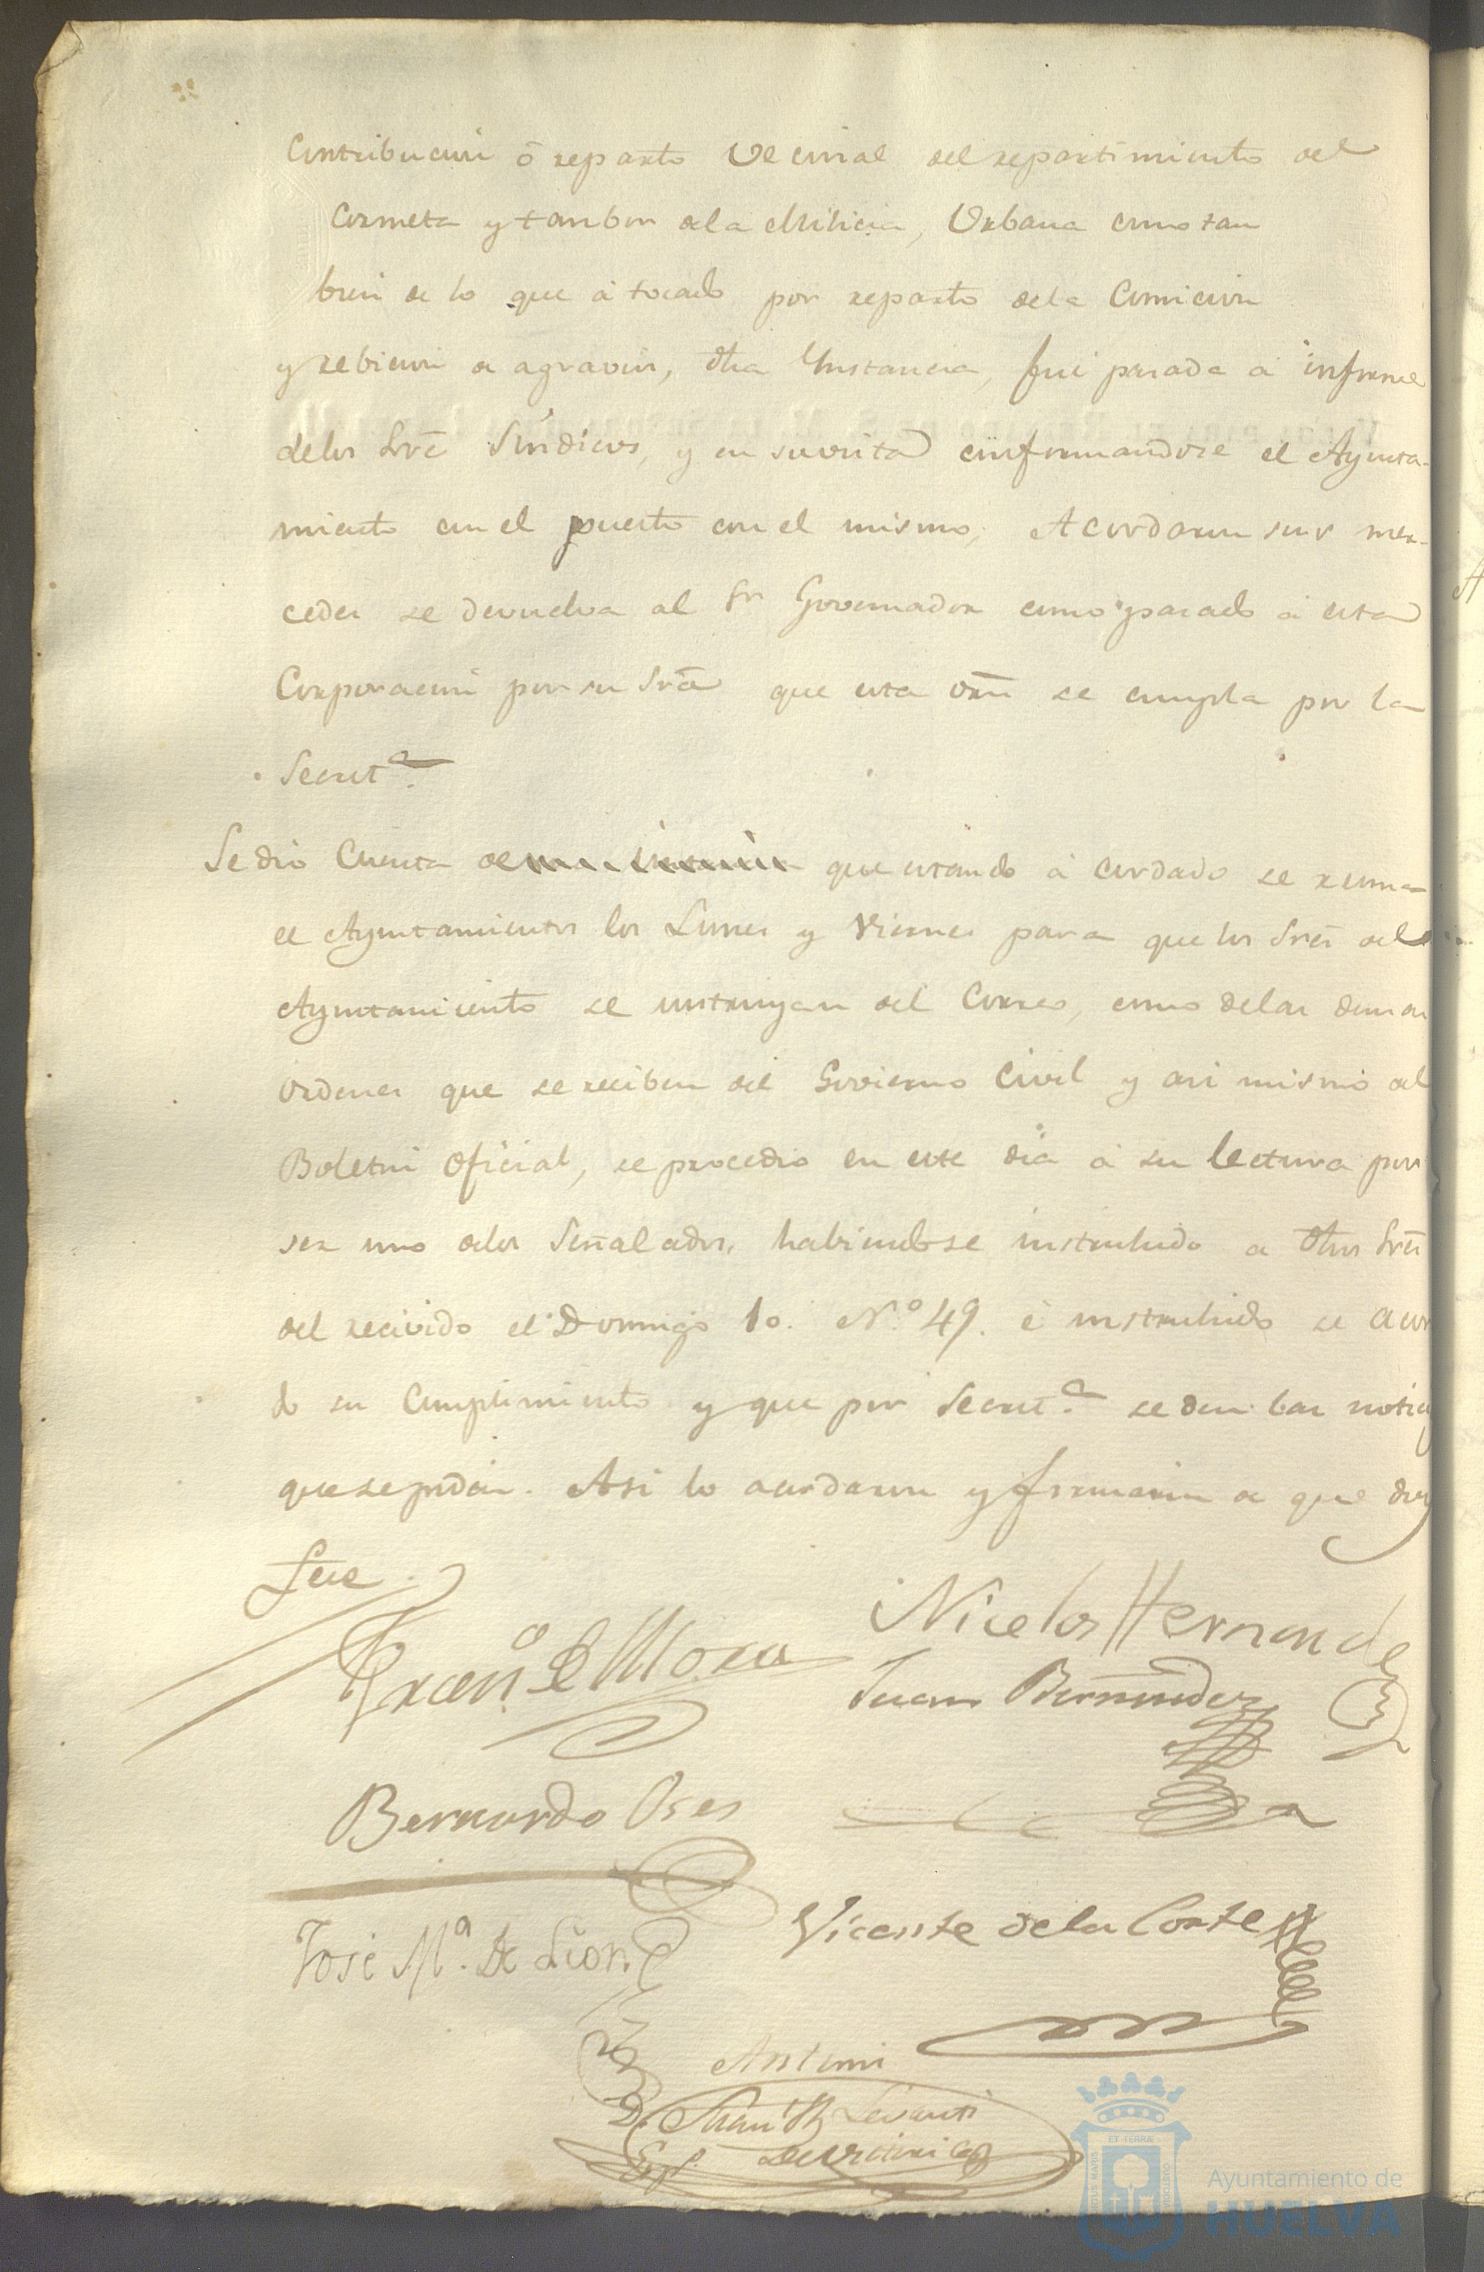 Contribucion ó reparto Vecinal del repartimiento del
Corneta y tambor dela Milicia, Urbana como tam
bien de lo que á tocado por reparto dela Comicion
y rebicion de agravios, dha Ynstancia, fue pasada á informe
delos Sres Sindicos, y en su vista conformandose el Ayunta-
miento con el puesto con el mismo, Acordaron sus mer-
cedes se devuelva al Sr Governador como pasado á esta
Corporacion por su Sria que esta orn se cumpla por la
Secret.ª
Se dio Cuenta de que estando á cordado se reuna
el Ayuntamientos los Lunes y Viernes para que los Sres del
Ayuntamiento se instruyan del Correo, como delas demas
ordenes que se reciben del Govierno Civil y asi mismo del
Boletin oficial, se procedio en este dia á su lectura por
ser uno delos Señalados, habiendose instruhido a dhos Sres
del recivido el Domingo 10. N.º 49. é instruhido se acor
do su Cumplimiento y que por Secret.ª se den las noticias
que se pidan. Asi lo acordaron y firmaron de que doy
fee.
Nicolas Hernandez
Franº de Mora
Juan Bermudez
Bernardo Oses
Vicente dela Corte
José Mª. De Leon
Antemi
D.
Esno.
ET TERRÆ
PORTUS MARIS
CUSTODIA
Ayuntamiento de
HUELVA